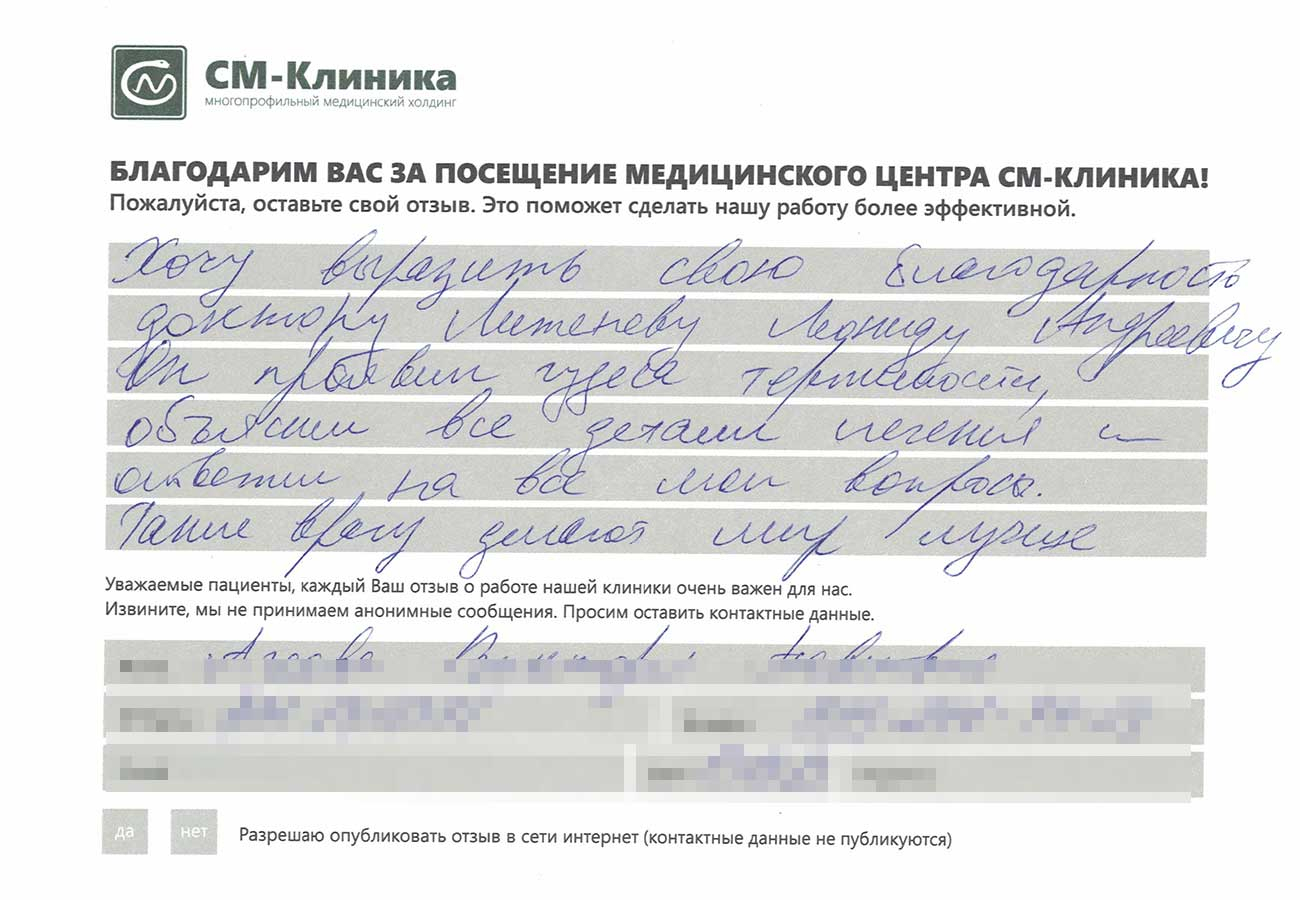 СМ-Клиника
многопрофильный медицинский холдинг
БЛАГОДАРИМ ВАС ЗА ПОСЕЩЕНИЕ МЕДИЦИНСКОГО ЦЕНТРА СМ-КЛИНИКА!
Пожалуйста, оставьте свой отзыв. Это поможет сделать нашу работу более эффективной.
Хочу выразить свою благодарность
доктору Леониду Андреевичу
Он проявил чудеса терпеливости,
объяснил все детали лечения и
ответил на все мои вопросы.
Такие врачи делают мир лучше
Уважаемые пациенты, каждый Ваш отзыв о работе нашей клиники очень важен для нас.
Извините, мы не принимаем анонимные сообщения. Просим оставить контактные данные.
да нет Разрешаю опубликовать отзыв в сети интернет (контактные данные не публикуются)